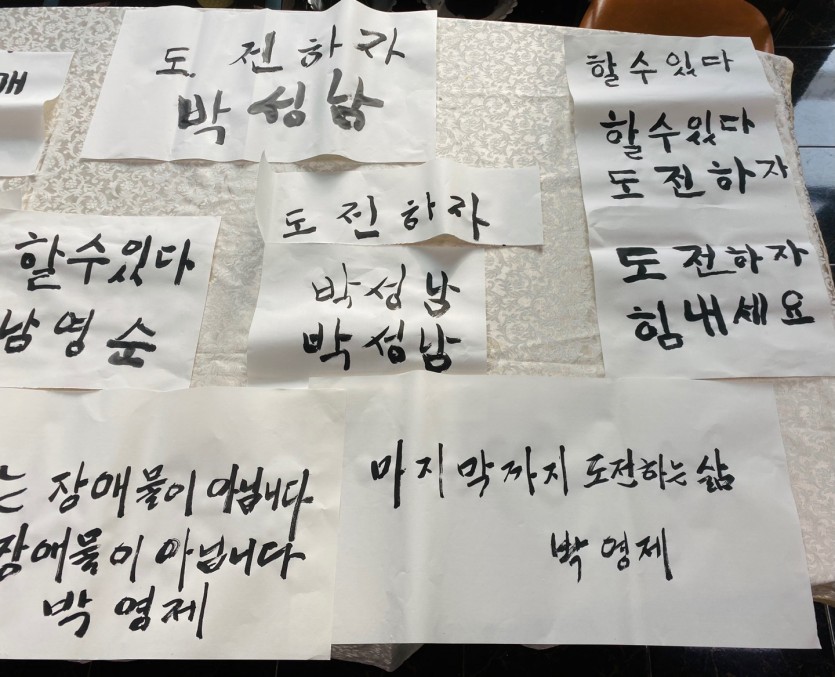 매
도전하자
박성남
할수있다
할수있다
도전하자
도전하자
힘내세요
도전하자
박성남
박성남
할수있다
남영순
는 장애물이 아닙니다
장애물이 아닙니다
박영제
마지막까지 도전하는 삶
박영제